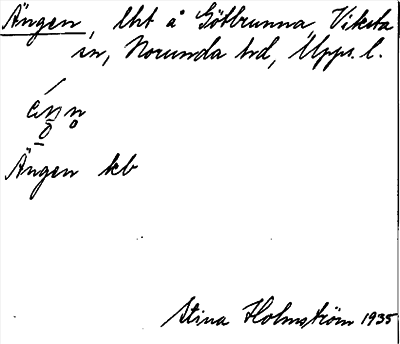 Ängen, lht å Götbrunna, Viksta
sn, Norunda hd, Upps. l.
Ängen kb
Stina Holmström 1935